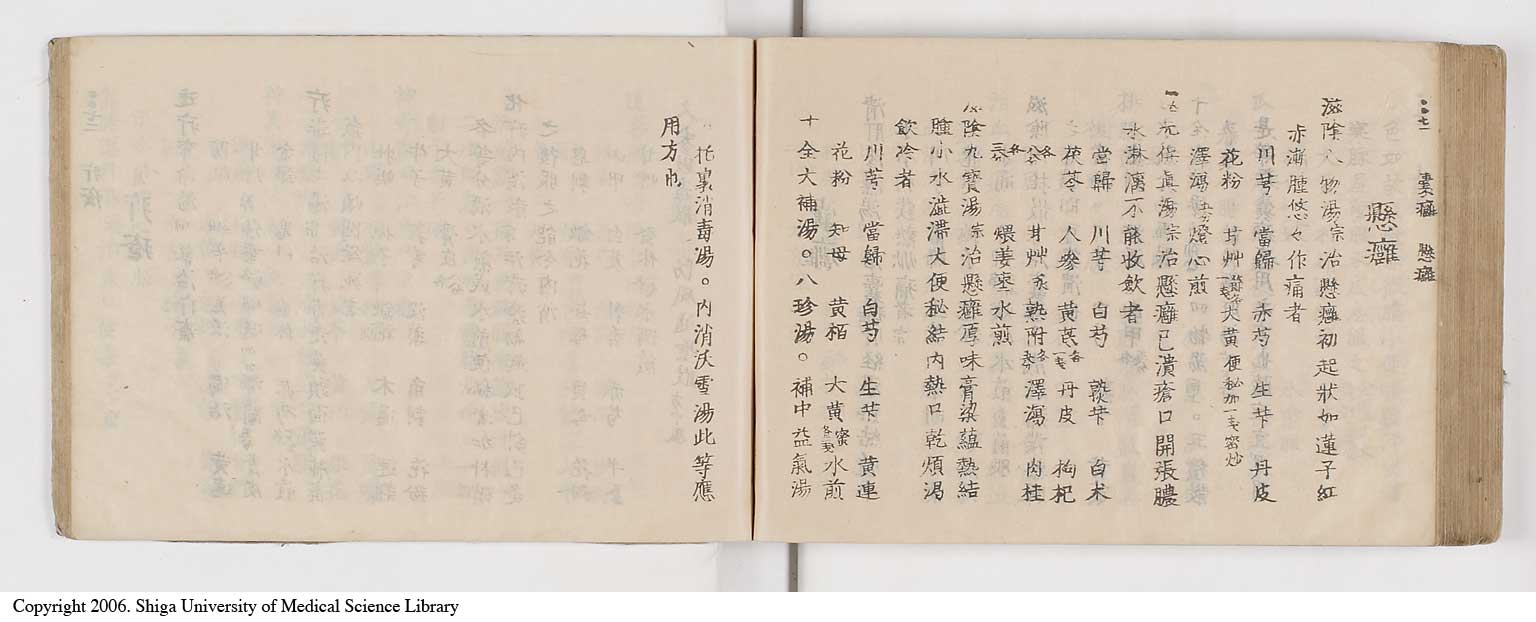 囊癰 懸癰
懸癰
滋陰八物湯宗治懸癰初起狀如蓮子紅
赤漸腫悠々作痛者
川芎 當歸 赤芍 生苄 丹皮
花粉 甘艸 大黄便秘加一戔蜜炒
澤瀉 燈心煎
元保眞湯宗治懸癰已潰瘡口開張膿
水淋漓不能收歛者
當歸 川芎 白芍 熟苄 白术
茯苓 人參 黄芪各一戔 丹皮 枸杞
各 甘艸炙 熟附各 澤瀉 肉桂
煨姜 水煎
滋陰九寶湯宗治懸癰厚味膏粱蘊熱結
腫小水澁滯大便秘結内熱口乾煩渇
飲冷者
川芎 當歸 白芍 生苄 黄連
花粉 知母 黄栢 大黄蜜 水煎
十全大補湯。八珍湯。補中益氣湯
托裏消毒湯。内消沃雪湯此等應
用方也
Copyright 2006. Shiga University of Medical Science Library